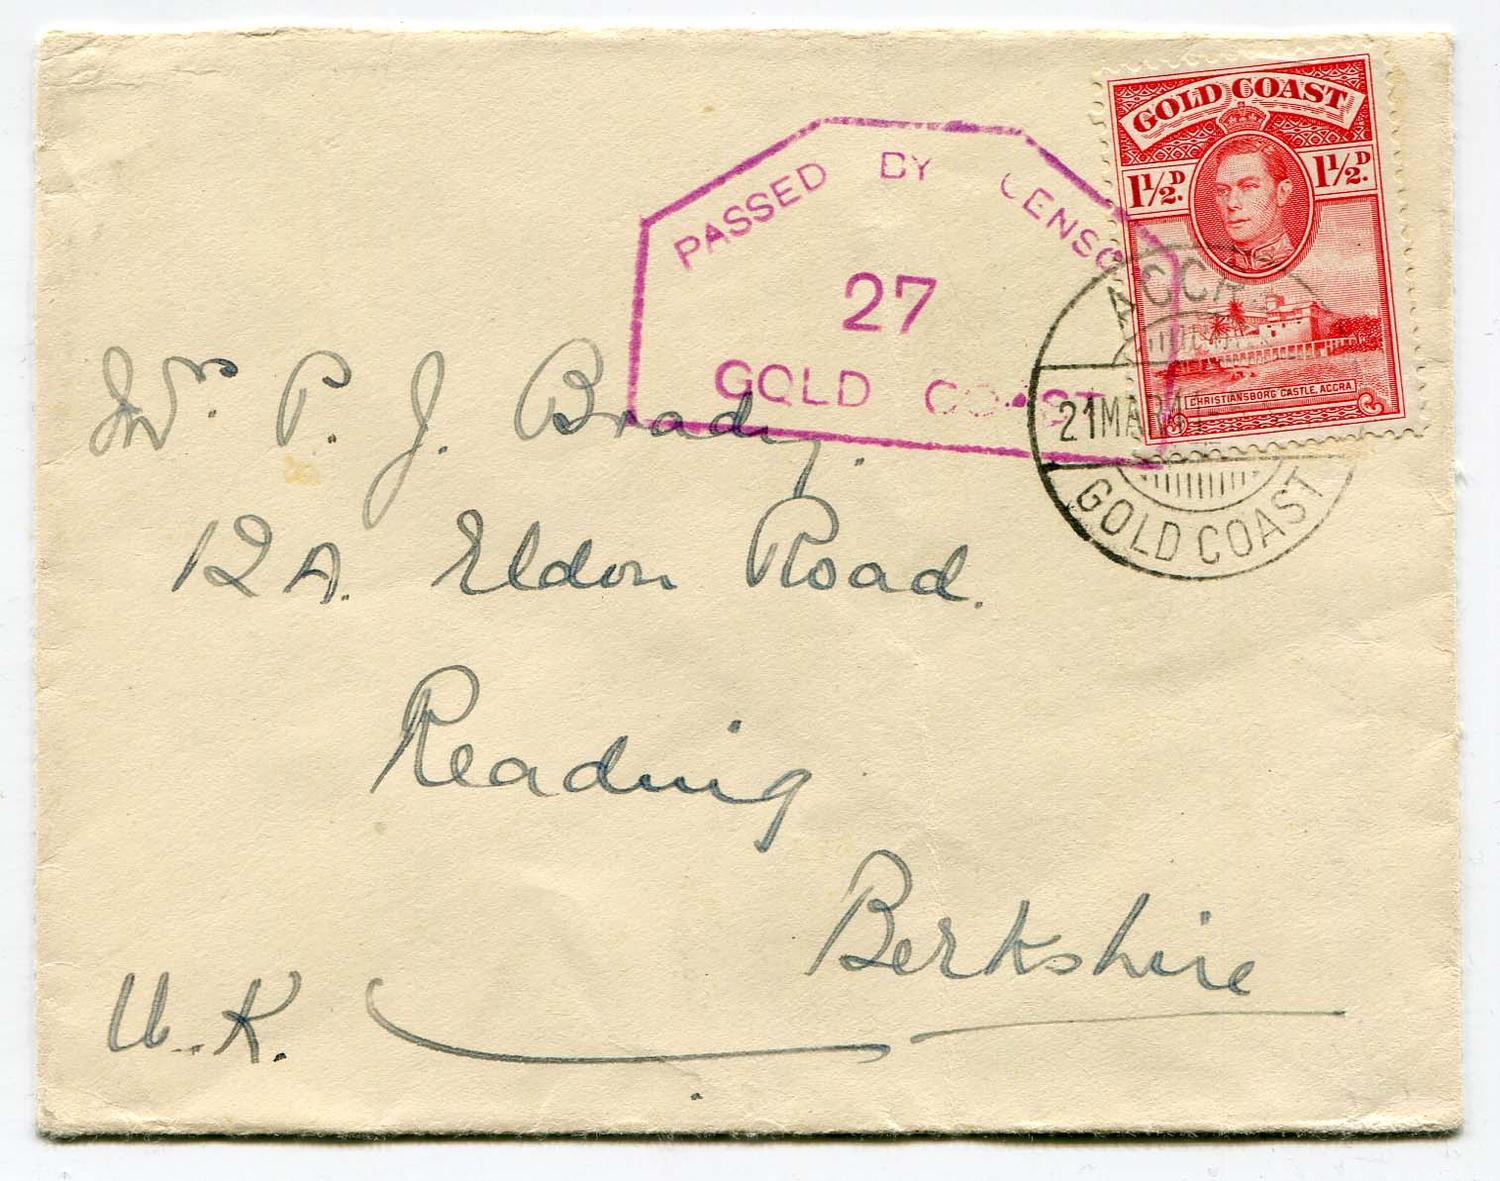 GOLD COAST
1½D. 1½D.
CHRISTIANSBORG CASTLE, ACCRA
PASSED BY CENSO
27
GOLD COAST
ACCR
21 MAR 41
GOLD COAST
Mrs. P. J. Brady.
12A. Eldon Road.
Reading
Berkshire
U.K.